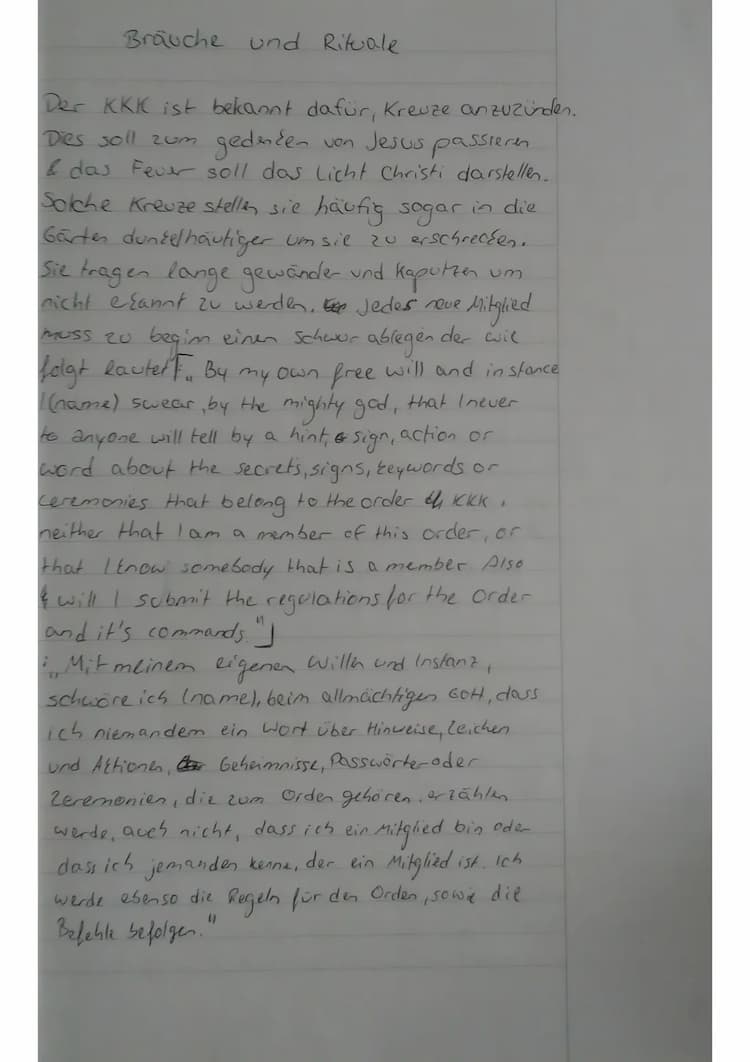 Bräuche und Rituale
Der KKK ist bekannt dafür, Kreuze anzuzünden.
Dies soll zum gedenken von Jesus passieren
& das Feuer soll das Licht Christi darstellen.
Solche Kreuze stellen sie häufig sogar in die
Gärten dunkelhäutiger um sie zu erschrecken.
Sie tragen lange gewänder und Kaputzen um
nicht erkannt zu werden. Jedes neue Mitglied
muss zu beginn einen Schwur ablegen der wie
folgt lautet[„ By my own free will and instance
I (name) swear, by the mighty god, that I never
to anyone will tell by a hint, sign, action or
word about the secrets, signs, keywords or
ceremonies that belong to the order KKK,
neither that I am a member of this order, or
that I know somebody that is a member Also
will I submit the regulations for the Order
and it's commands."]
: „Mit meinem eigenen Willen und Instanz,
schwöre ich (name), beim allmächtigen Gott, dass
ich niemandem ein Wort über Hinweise, Zeichen
und Aktionen, Geheimnisse, Passwörter oder
Zeremonien, die zum Orden gehören, erzählen
werde, auch nicht, dass ich ein Mitglied bin oder
dass ich jemanden kenne, der ein Mitglied ist. Ich
werde ebenso die Regeln für den Orden, sowie die
Befehle befolgen."